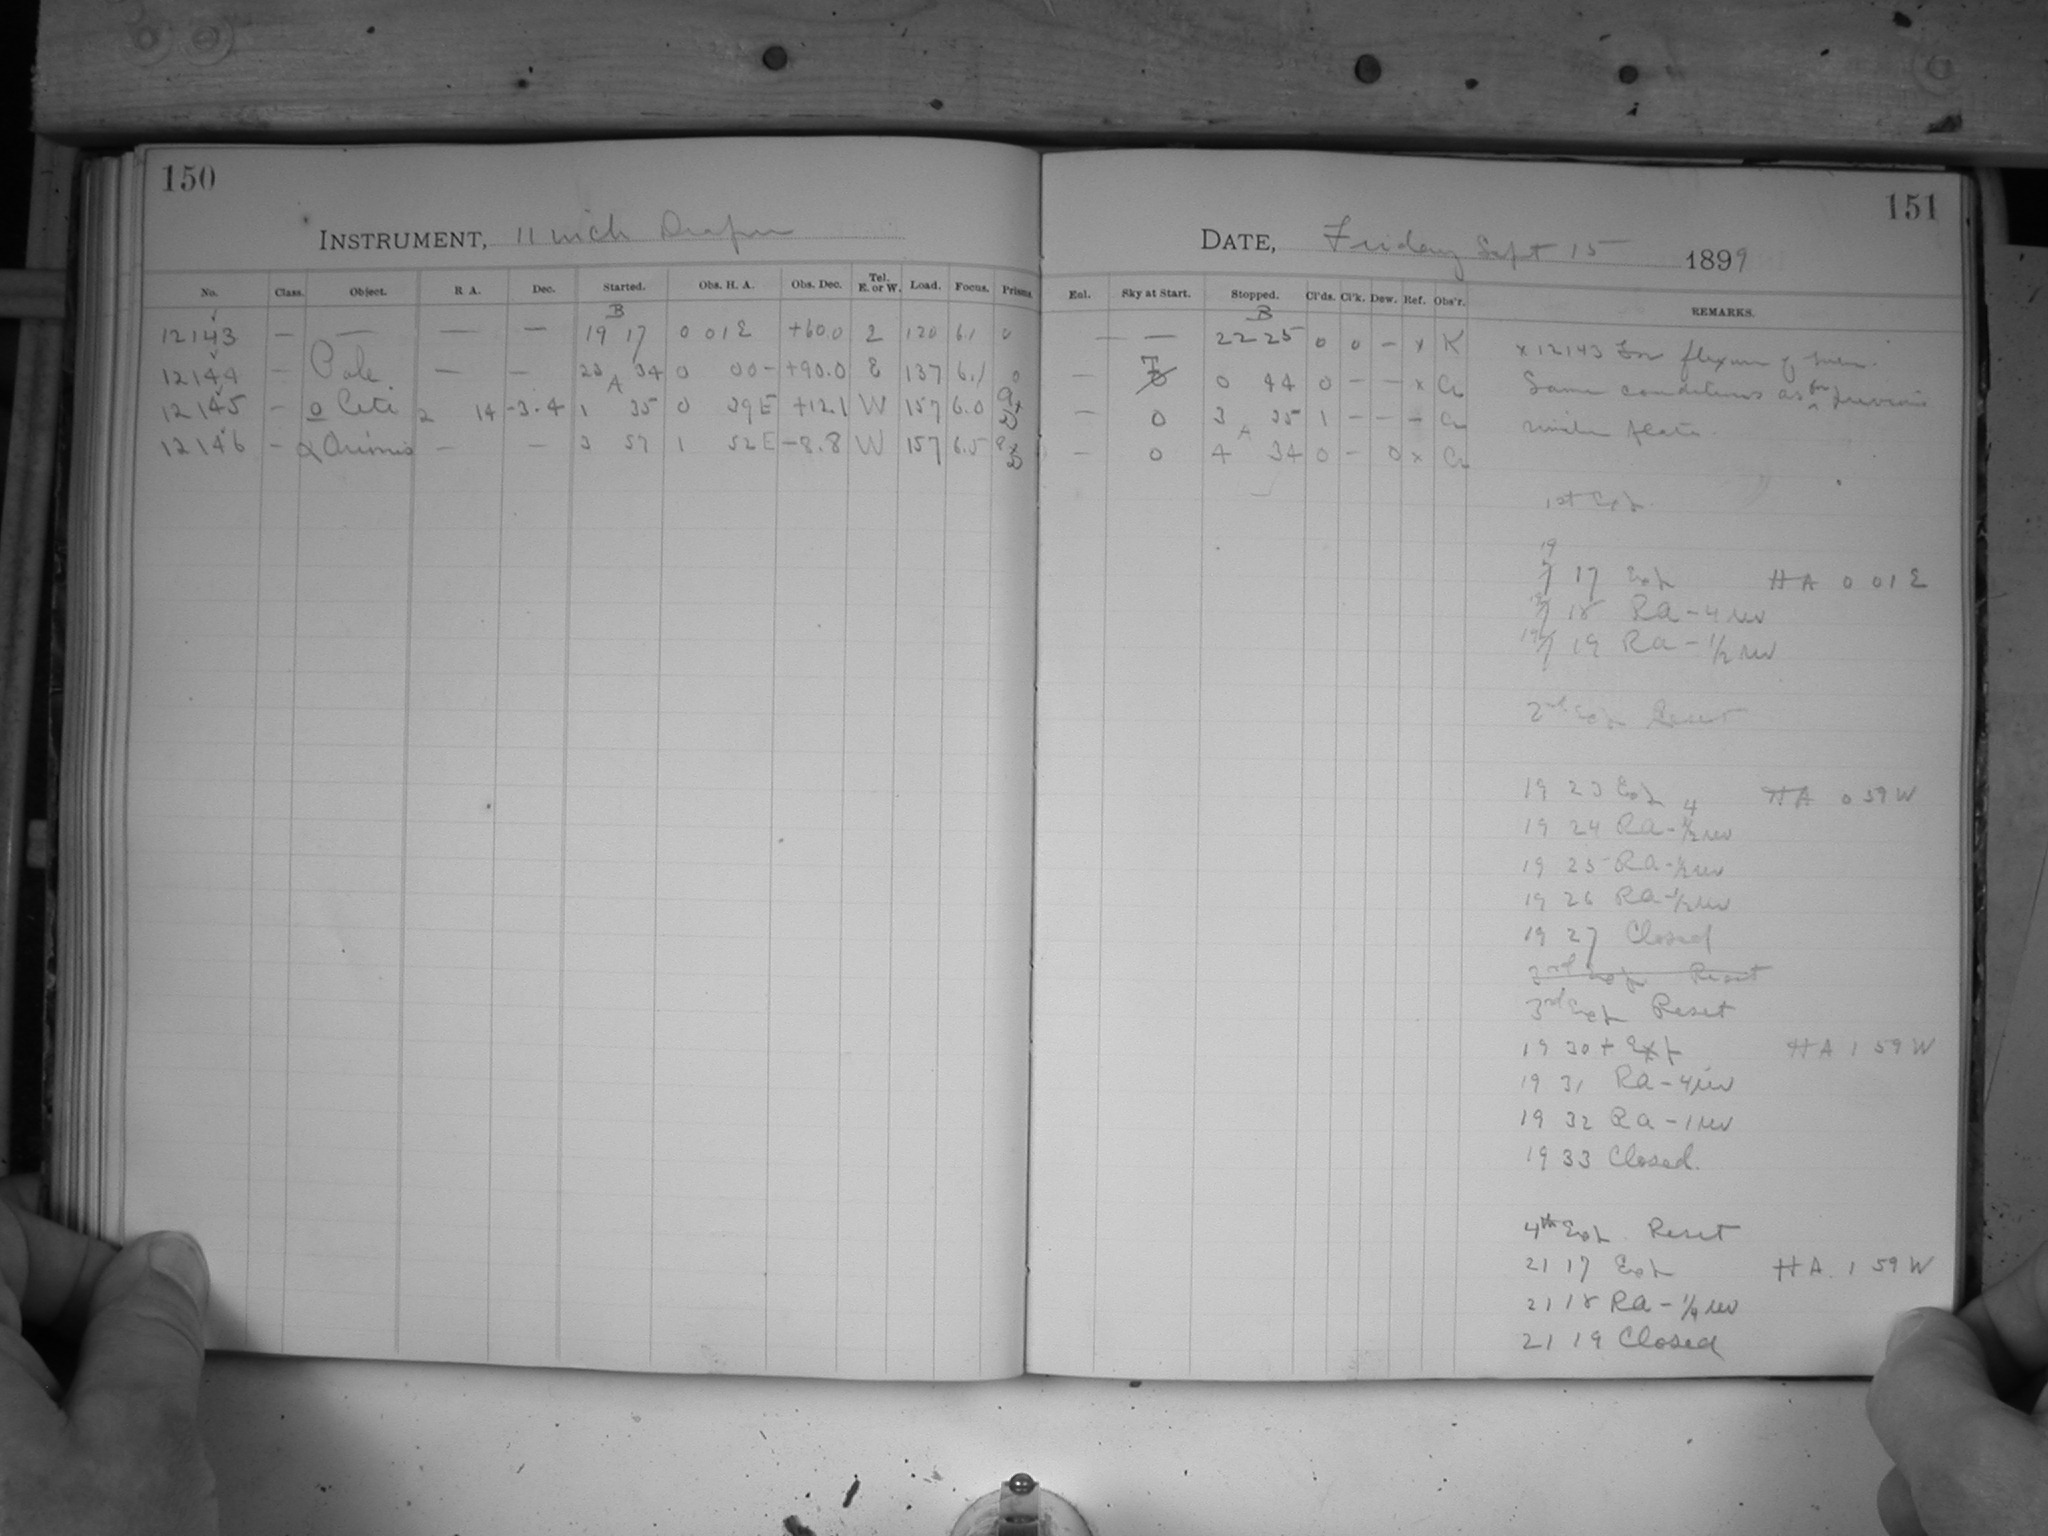 150
INSTRUMENT, 11 inch Draper
No. Class. Object. R A. Dec. Started. Obs. H. A. Obs. Dec. Tel. E. or W. Load. Focus. Prisms.
B
12143 — — — — 19 17 0 01 E +60.0 E 120 6.1 0
12144 — Pole — — 23 34 0 00 - +90.0 E 137 6.1 0
A
12145 - o Ceti 2 14 -3.4 1 35 0 39 E +12.1 W 157 6.0
12146 - α Orionis — — 3 57 1 52 E -8.8 W 157 6.5
151
DATE, Friday Sept 15 1899
Enl. Sky at Start. Stopped. Cl'ds. Cl'k. Dew. Ref. Obs'r. REMARKS.
B
— — 22 25 0 0 - x K x 12143 For flexure of
— 0 44 0 - - x Cr Same conditions as for previous
— 0 3 35 1 - - - Cr similar plate.
A
— 0 4 34 0 - 0 x Cr
1st Exp.
19
17 Exp HA 0 01 E
19 18 RA - 4 rev
19 19 RA - 1/2 rev
2nd Exp Reset
19 23 Exp HA 0 59 W
4
19 24 RA - rev
19 25 RA - 1/2 rev
19 26 RA - 1/2 rev
19 27 Closed
3rd Exp Reset
3rd Exp Reset
19 30 + Exp HA 1 59 W
19 31 RA - 4 rev
19 32 RA - 1 rev
19 33 Closed.
4th Exp Reset
21 17 Exp HA. 1 59 W
21 18 RA - 1/4 rev
21 19 Closed